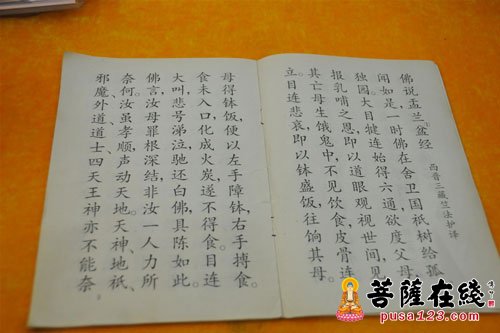 佛说盂兰盆经
西晋三藏竺法护译
闻如是,一时佛在舍卫国祇树给孤
独园。大目犍连始得六通,欲度父母,
报乳哺之恩,即以道眼观视世间,见
其亡母生饿鬼中,不见饮食,皮骨连
立。目连悲哀,即以钵盛饭,往饷其母。
母得钵饭,便以左手障钵,右手搏食。
食未入口,化成火炭,遂不得食。目连
大叫,悲号涕泣,驰还白佛,具陈如此。
佛言,汝母罪根深结,非汝一人力所
奈何。汝虽孝顺声动天地。天神、地祇、
邪魔外道道士、四天王神亦不能奈
菩薩在綫
pusa123.com